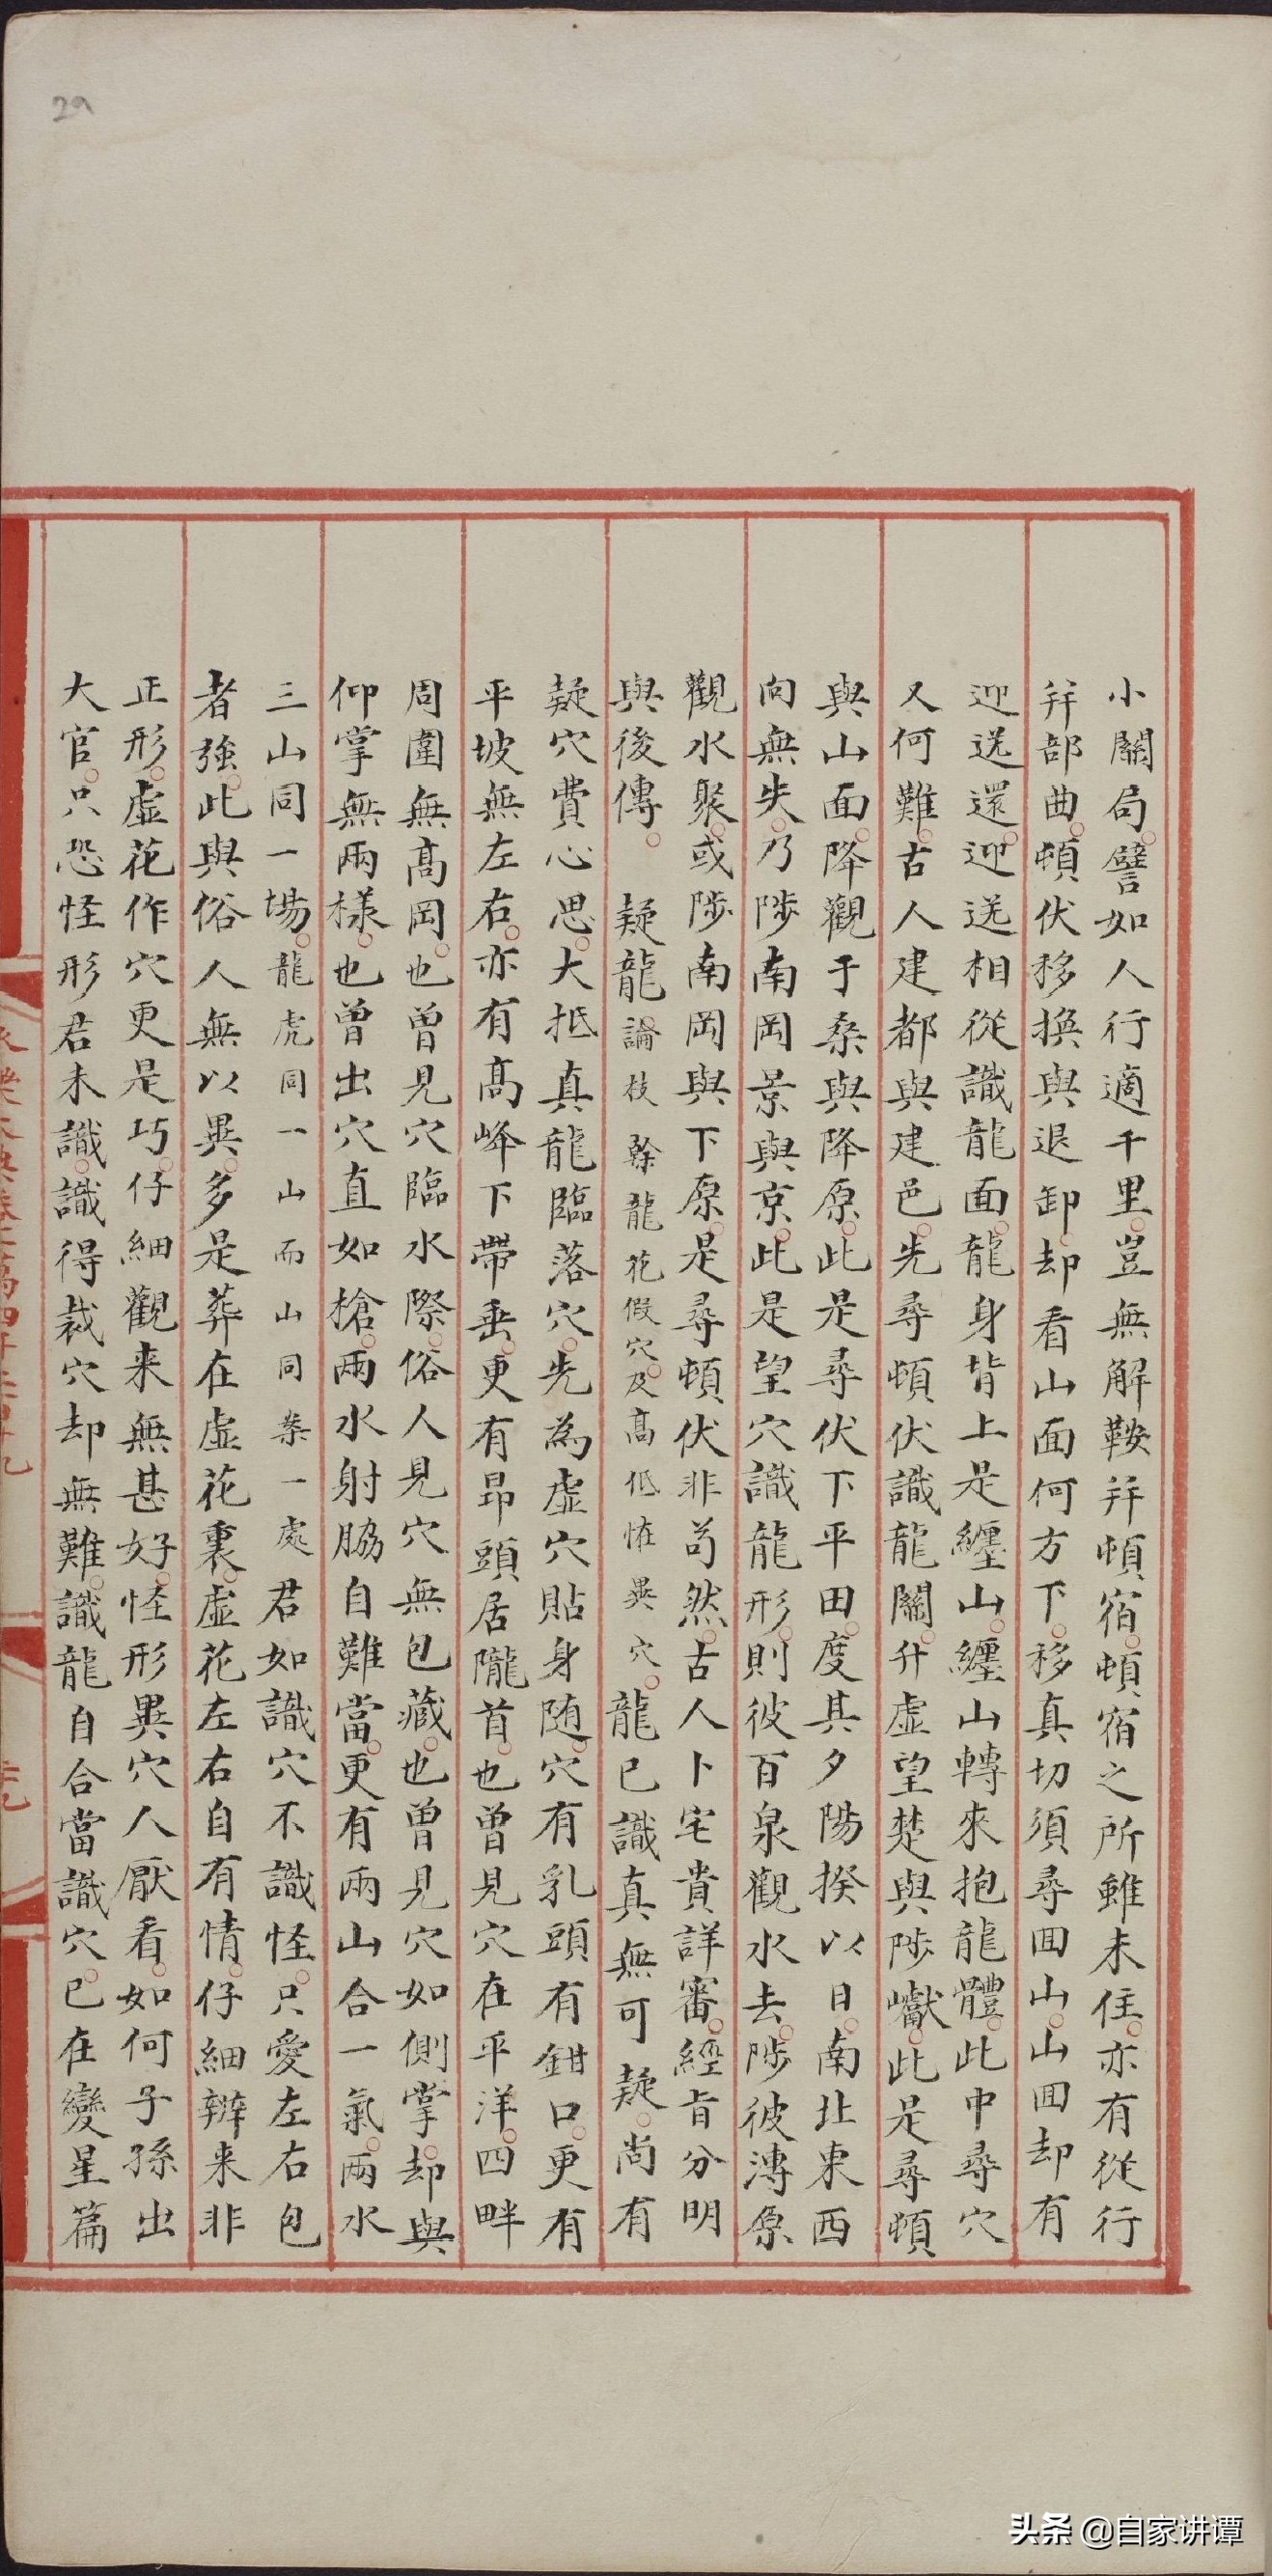 29
小關局譬如人行適千里豈無解鞍并頓宿頓宿之所雖未住亦有從行
并部曲頓伏移換與退卸却看山面何方下移真切須尋囬山山囬却有
迎送還迎送相從識龍面龍身背上是纏山纏山轉來抱龍體此中尋穴
又何難古人建都與建邑先尋頓伏識龍關升虛望楚與陟巘此是尋頓
與山面降觀于桑與降原此是尋伏下平田度其夕陽揆以日南北東西
向無失乃陟南岡景與京此是望穴識龍形則彼百泉觀水去陟彼溥原
觀水聚或陟南岡與下原是尋頓伏非苟然古人卜宅貴詳審經旨分明
與後傳 疑龍論枝幹龍花假穴及高低恠異穴 龍已識真無可疑尚有
疑穴費心思大抵真龍臨落穴先為虛穴貼身随穴有乳頭有鉗口更有
平坡無左右亦有高峰下帶垂更有昂頭居隴首也曾見穴在平洋四畔
周圍無高岡也曾見穴臨水際俗人見穴無包藏也曾見穴如側掌却與
仰掌無兩樣也曾出穴直如槍兩水射脇自難當更有兩山合一氣兩水
三山同一場龍虎同一山而山同案一處君如識穴不識怪只愛左右包
者強此與俗人無以異多是葬在虛花裏虛花左右自有情仔細辨来非
正形虛花作穴更是巧仔細觀来無甚好怪形異穴人厭看如何子孫出
大官只恐怪形君未識識得裁穴却無難識龍自合當識穴已在變星篇
头条 @自家讲谭